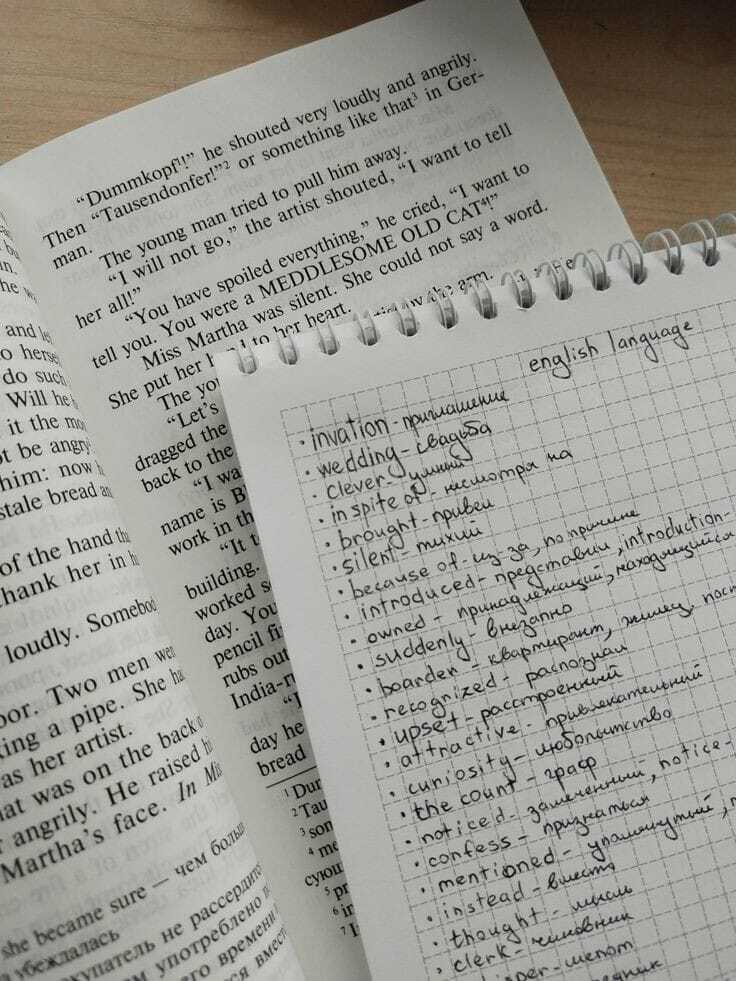 “Dummkopf¹!” he shouted very loudly and angrily.
Then “Tausendonfer!”² or something like that³ in Ger-
man.
The young man tried to pull him away.
“I will not go,” the artist shouted, “I want to tell
her all!”
“You have spoiled everything,” he cried, “I want to
tell you. You were a MEDDLESOME OLD CAT⁴!”
Miss Martha was silent. She could not say a word.
She put her to her heart.
The
“Let’s
dragged the
back to the
“I
name is
work in the
“It
building.
worked
day.
pencil
rubs out
day he
bread
and
do such
Will he
it the
be angry
him: now
stale bread
of the hand
thank her in
loudly.
Two men
king a pipe. She
as her artist.
was on the back
angrily. He raised
Martha’s face. In
she became sure — чем
убеждалась
не
употреблено
времени
english language
· invation - приглашение
· wedding - свадьба
· clever - умный
· in spite of - несмотря на
· brought - привел
· silent - тихий
· because of - из-за, по причине
· introduced - представил, introduction-
· owned - принадлежащий, находящийся
· suddenly - внезапно
· boarder - квартирант, жилец,
· recognized - распознал
· upset - расстроенный
· attractive - привлекательный
· curiosity - любопытство
· the count - граф
· noticed - замеченный, notice-
· confess - признаться
· mentioned - упомянутый,
· instead - вместо
· thought - мысль
· clerk - чиновник
шепот